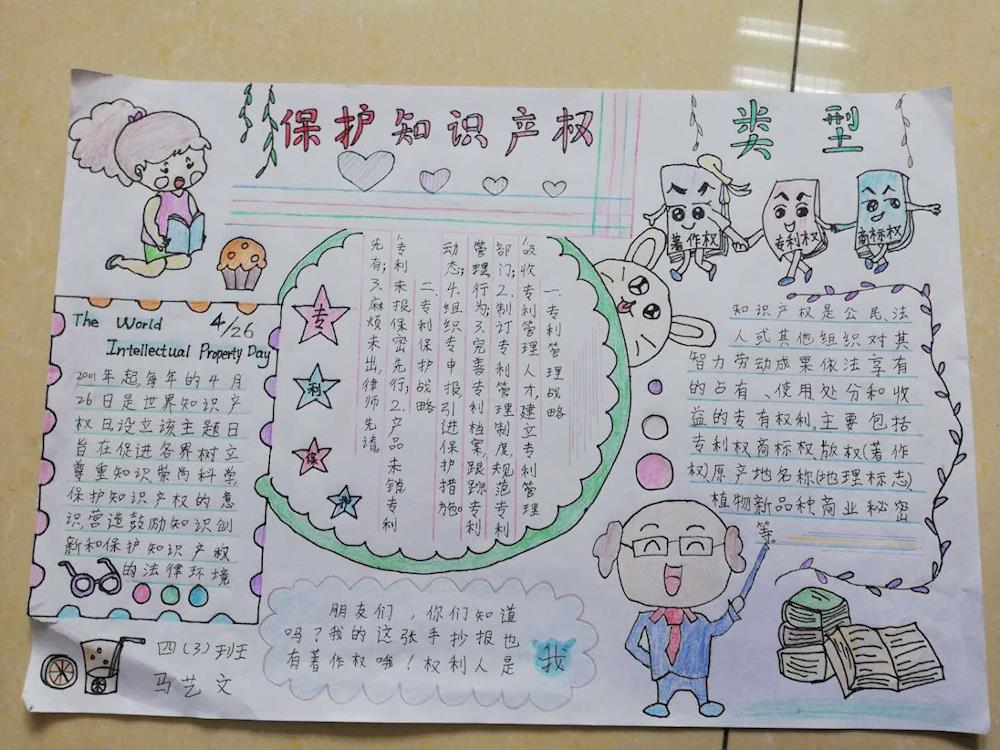 保护知识产权
类型
The World 4/26
Intellectual Property Day
2001年起每年的4月
26日是世界知识产
权日设立该主题日
旨在促进各界树立
尊重知识崇尚科学
保护知识产权的意
识营造鼓励知识创
新和保护知识产权
的法律环境
专
利
保
护
一、专利管理战略
吸收专利管理人才,建立专利管理
部门;2.制订专利管理制度,规范专利
管理行为;3.完善专利档案,跟踪专利
动态;4.组织专申报引进保护措施
二、专利保护战略
专利未报保密先行;2.产品未销专利
先有;3.麻烦未出,律师先请。
著作权
专利权
商标权
知识产权是公民、法
人或其他组织对其
智力劳动成果依法享有
的占有、使用处分和收
益的专有权利,主要包括
专利权商标权版权(著作
权)原产地名称(地理标志)
植物新品种商业秘密
等。
朋友们,你们知道
吗?我的这张手抄报也
有著作权哦!权利人是
我
四(3)班
马艺文